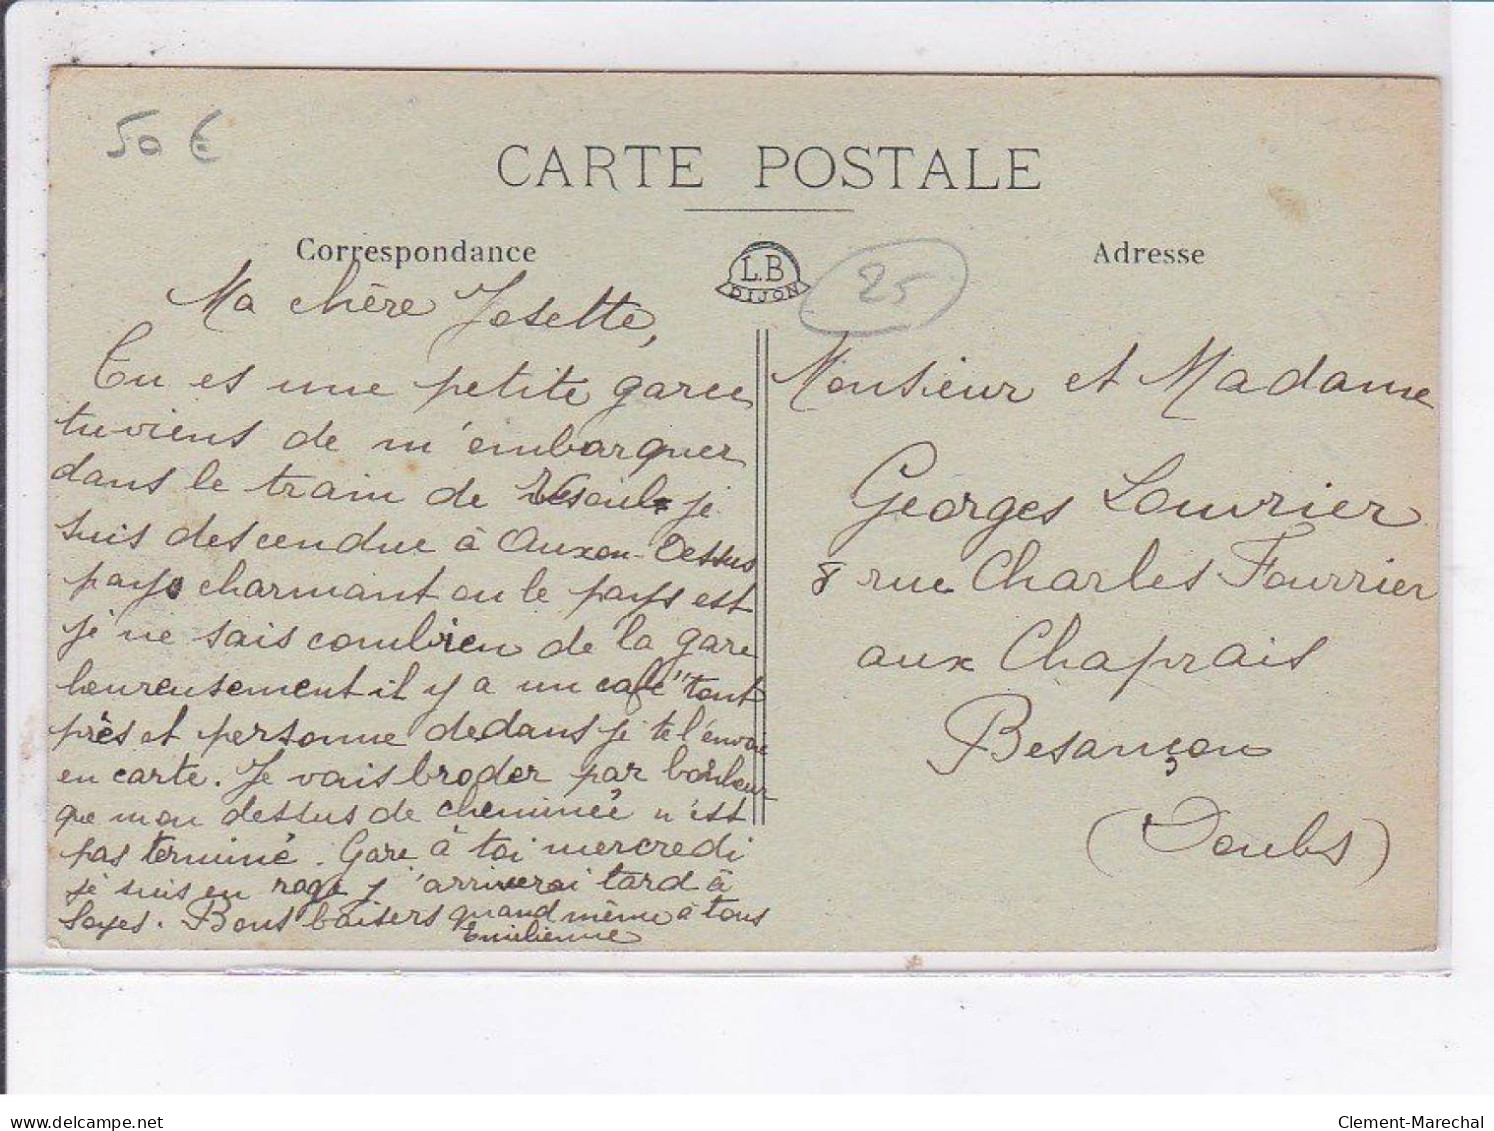 50 €
CARTE POSTALE
Correspondance
L.B
DIJON
25
Adresse
Ma chère Josette,
Tu es une petite garce
tu viens de m'embarquer
dans le train de Vesoul je
suis descendue à Auxon-Dessus
pays charmant ou le pays est
je ne sais combien de la gare
heureusement il y a un café tout
près et personne dedans je te l'envoie
en carte. Je vais broder par bonheur
que mon dessus de cheminée n'est
pas terminé. Gare à toi mercredi
je suis en rage j'arriverai tard à
Loyes. Bons baisers quand même à tous
Emilienne
Monsieur et Madame
Georges Louvrier
8 rue Charles Fourrier
aux Chaprais
Besançon
(Doubs)
delcampe.net
Clement-Marechal